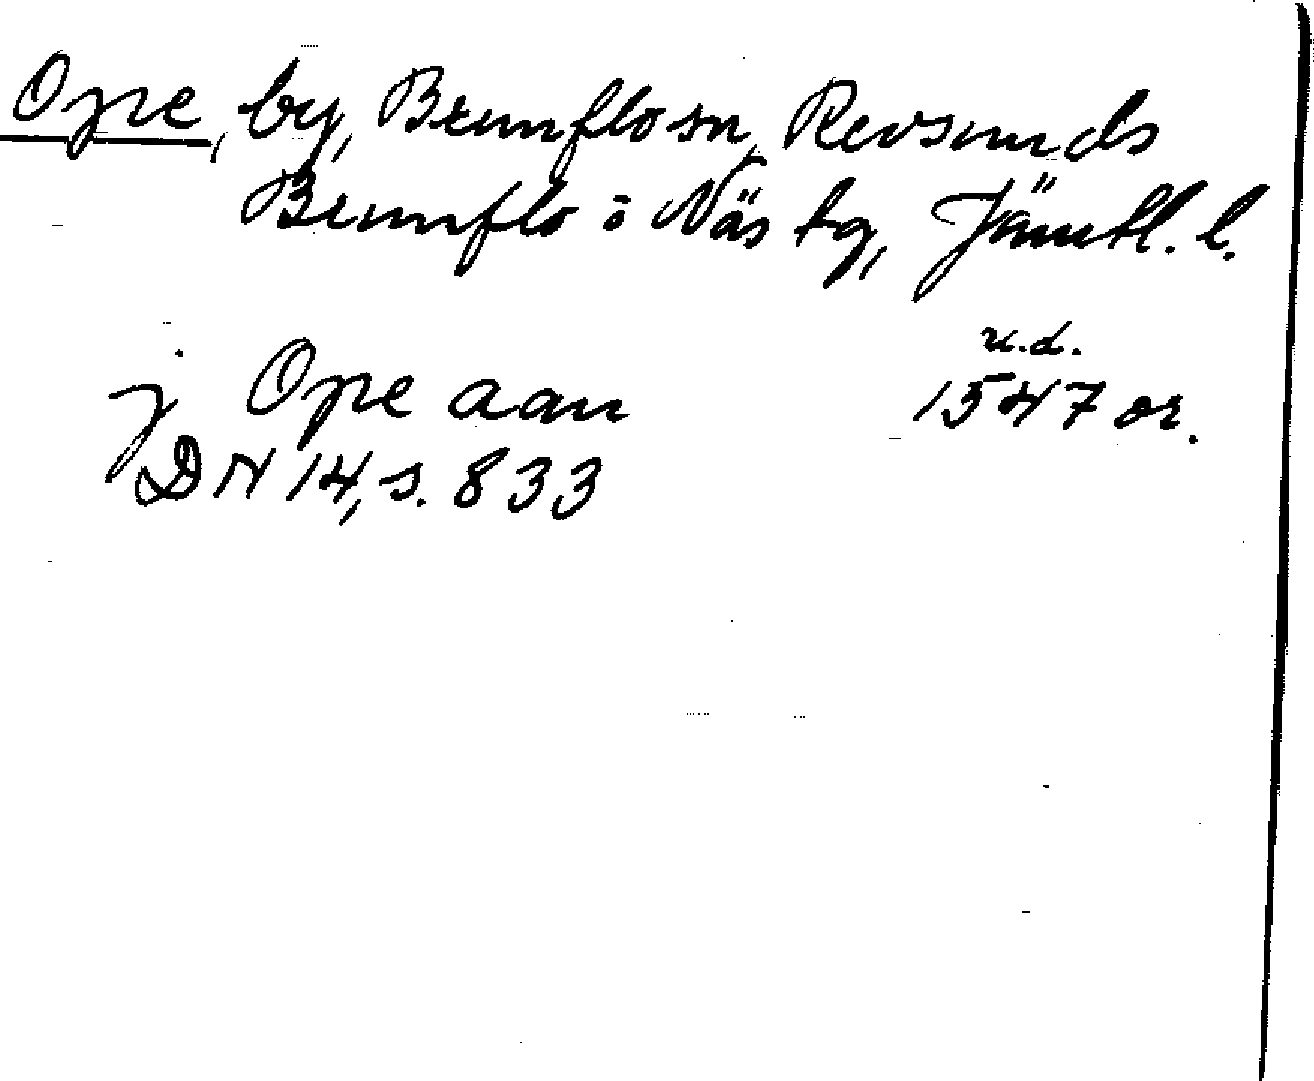 Ope, by, Brunflo sn, Revsunds
Brunflo o Näs tg, Jämtl. l.
u.d.
j Ope aan 1547 or.
DN 14, s. 833